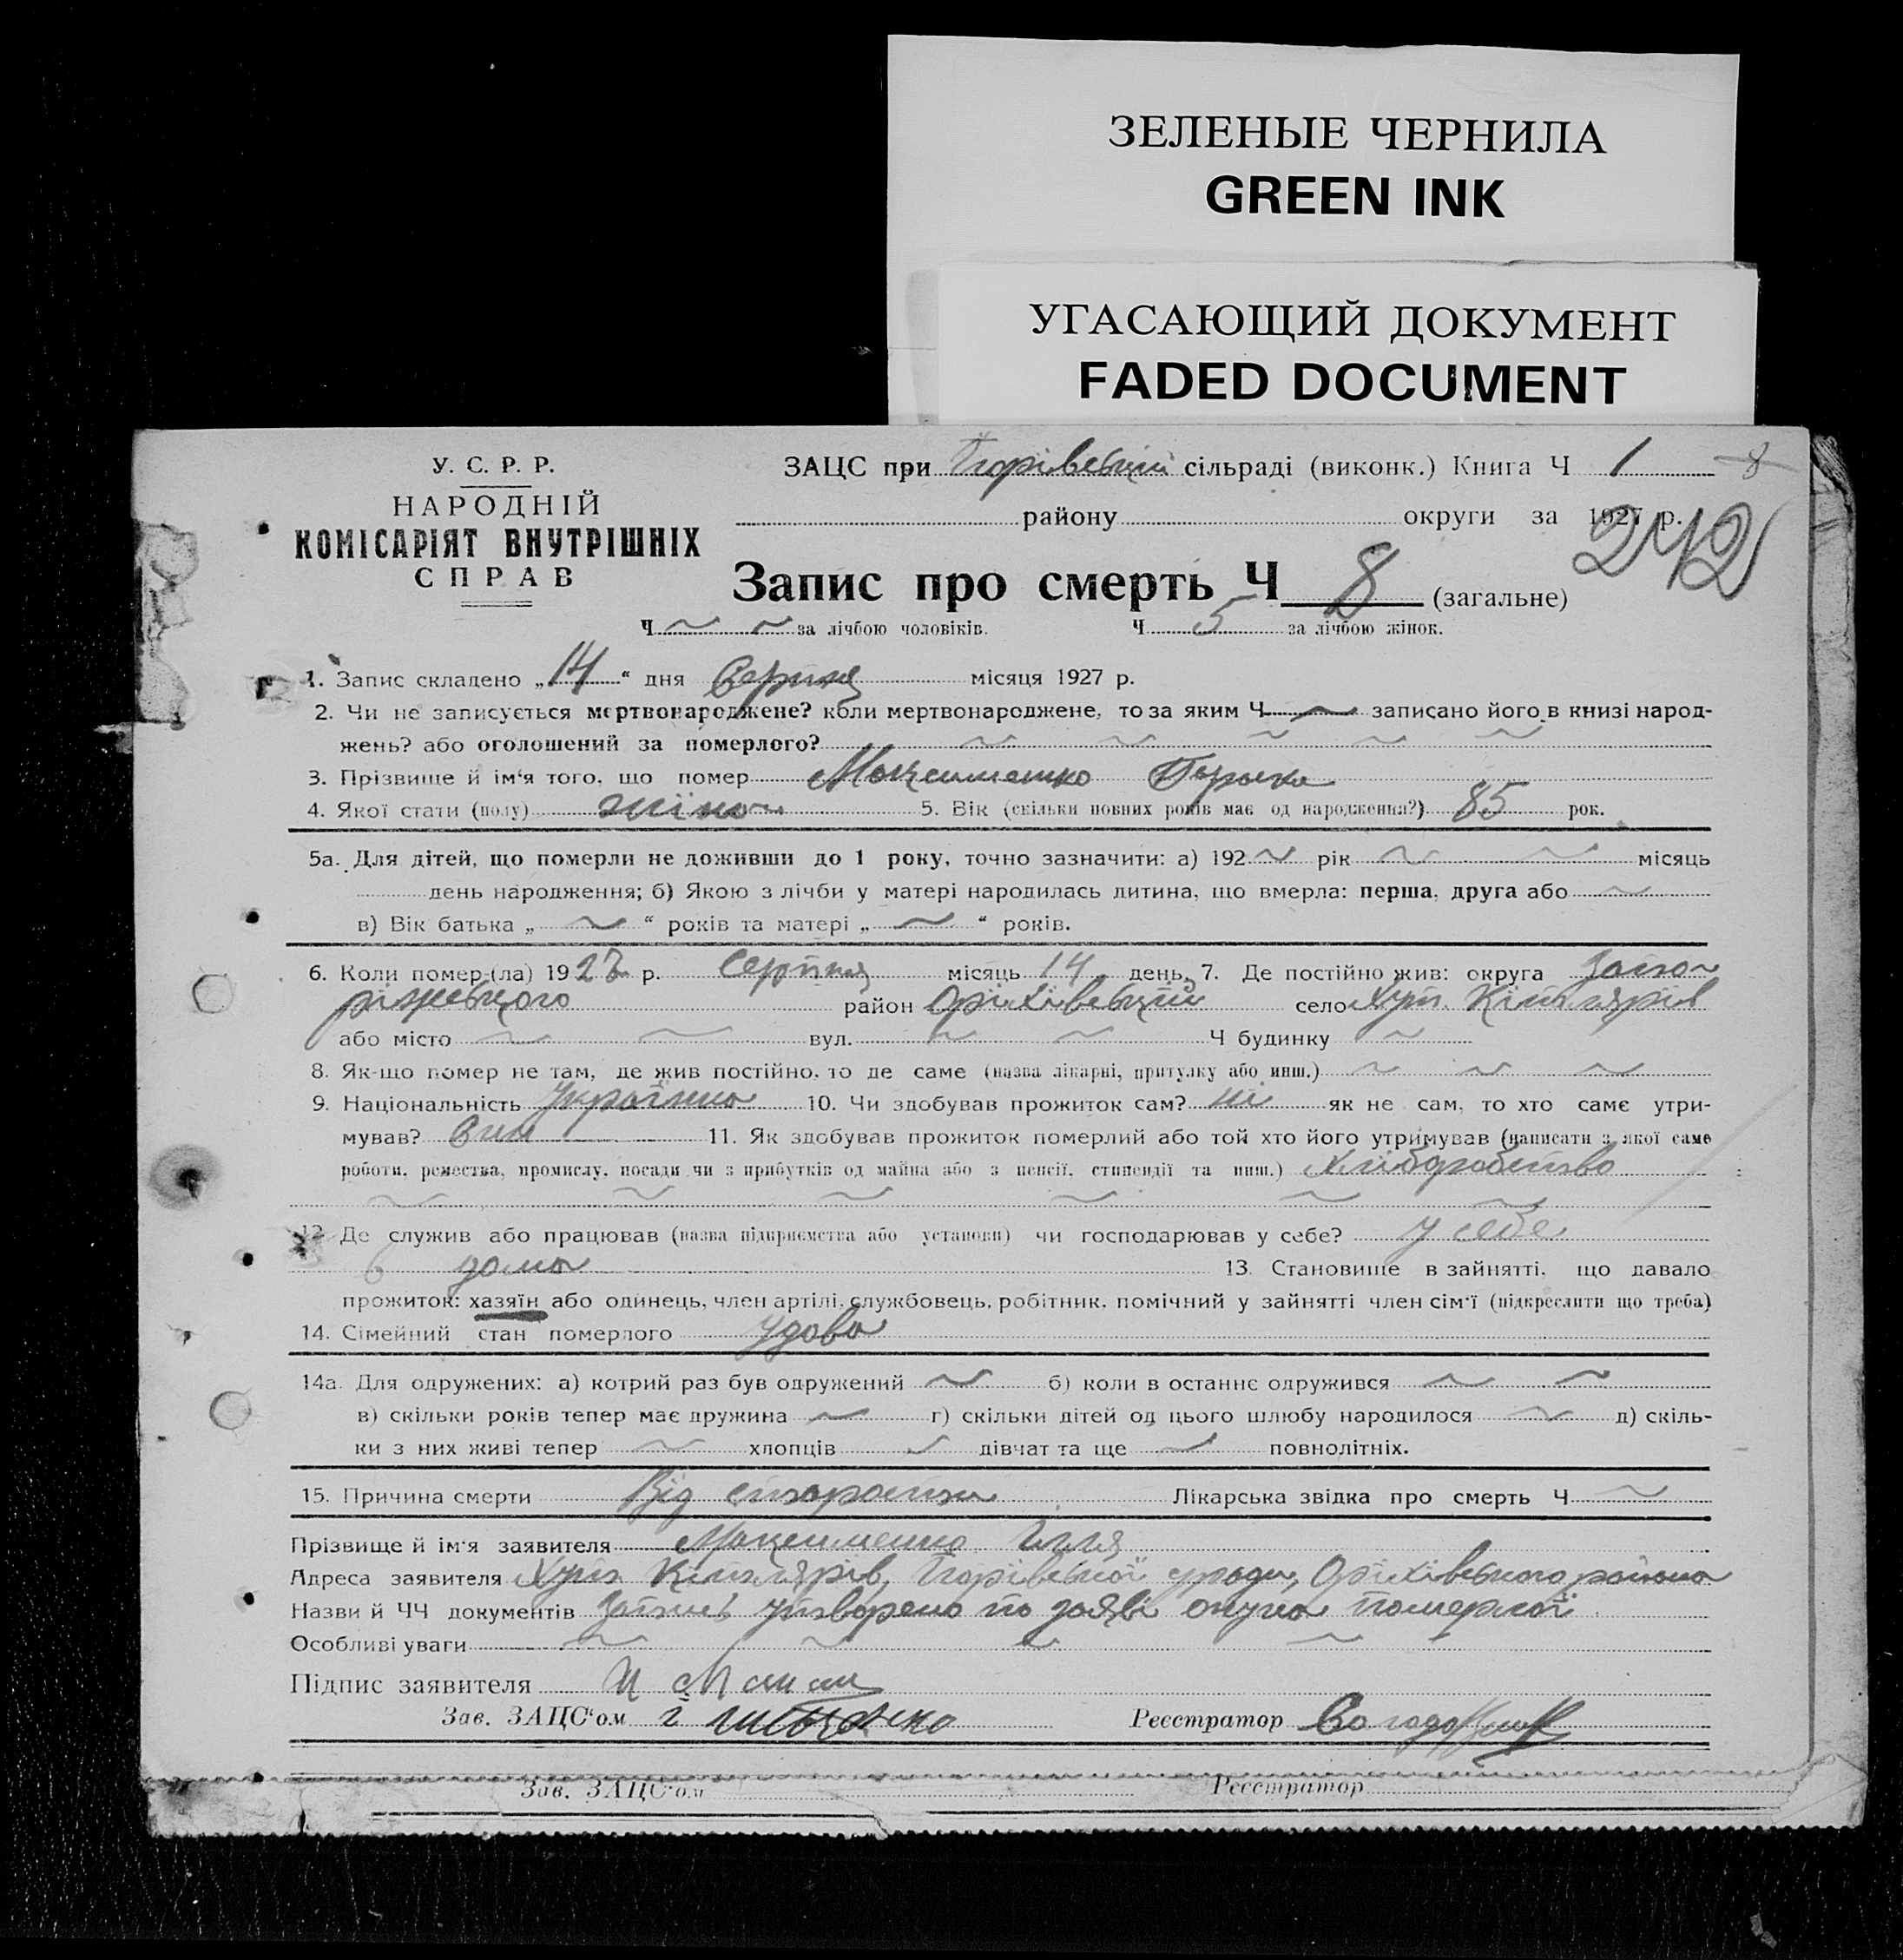 ЗЕЛЕНЫЕ ЧЕРНИЛА
GREEN INK
УГАСАЮЩИЙ ДОКУМЕНТ
FADED DOCUMENT
У. С. Р. Р.
НАРОДНІЙ
КОМІСАРІЯТ ВНУТРІШНІХ
СПРАВ
ЗАЦС при сільраді (виконк.) Книга Ч 1 8
району округи за 1927 р.
242
Запис про смерть Ч 8 (загальне)
Ч за лічбою чоловіків. Ч 5 за лічбою жінок.
1. Запис складено „14“ дня Серпня місяця 1927 р.
2. Чи не записується мертвонароджене? коли мертвонароджене, то за яким Ч записано його в книзі народ-
жень? або оголошений за померлого?
3. Прізвище й ім‘я того, що помер Максименко
4. Якої стати (полу) жіноч 5. Вік (скільки повних років має од народження?) 85 рок.
5а. Для дітей, що померли не доживши до 1 року, точно зазначити: а) 192 рік місяць
день народження; б) Якою з лічби у матері народилась дитина, що вмерла: перша, друга або
в) Вік батька „ “ років та матері „ “ років.
6. Коли помер-(ла) 1927 р. Серпня місяць 14 день, 7. Де постійно жив: округа Запо-
ріжського район Оріхівський село Хут. Кітлярів
або місто вул. Ч будинку
8. Як-що помер не там, де жив постійно, то де саме (назва лікарні, притулку або инш.)
9. Національність Українка 10. Чи здобував прожиток сам? ні як не сам, то хто саме утри-
мував? Син 11. Як здобував прожиток померлий або той хто його утримував (написати з якої саме
роботи, ремества, промислу, посади чи з прибутків од майна або з пенсії, стипендії та инш.) Хліборобство
12 Де служив або працював (назва підприємства або установи) чи господарював у себе? у себе
в дома 13. Становище в зайнятті, що давало
прожиток: хазяїн або одинець, член артілі, службовець, робітник, помічний у зайнятті член сім‘ї (підкреслити що треба)
14. Сімейний стан померлого удова
14а. Для одружених: а) котрий раз був одружений б) коли в останнє одружився
в) скільки років тепер має дружина г) скільки дітей од цього шлюбу народилося д) скіль-
ки з них живі тепер хлопців дівчат та ще повнолітніх.
15. Причина смерти Від старости Лікарська звідка про смерть Ч
Прізвище й ім‘я заявителя Максименко Ілля
Адреса заявителя Хут. Кітлярів, сради, Оріхівського района
Назви й ЧЧ документів Запись утворено по заяві онука померлої
Особливі уваги
Підпис заявителя И Макси
Зав. ЗАЦС‘ом Реєстратор
Зав. ЗАЦС‘ом Реєстратор